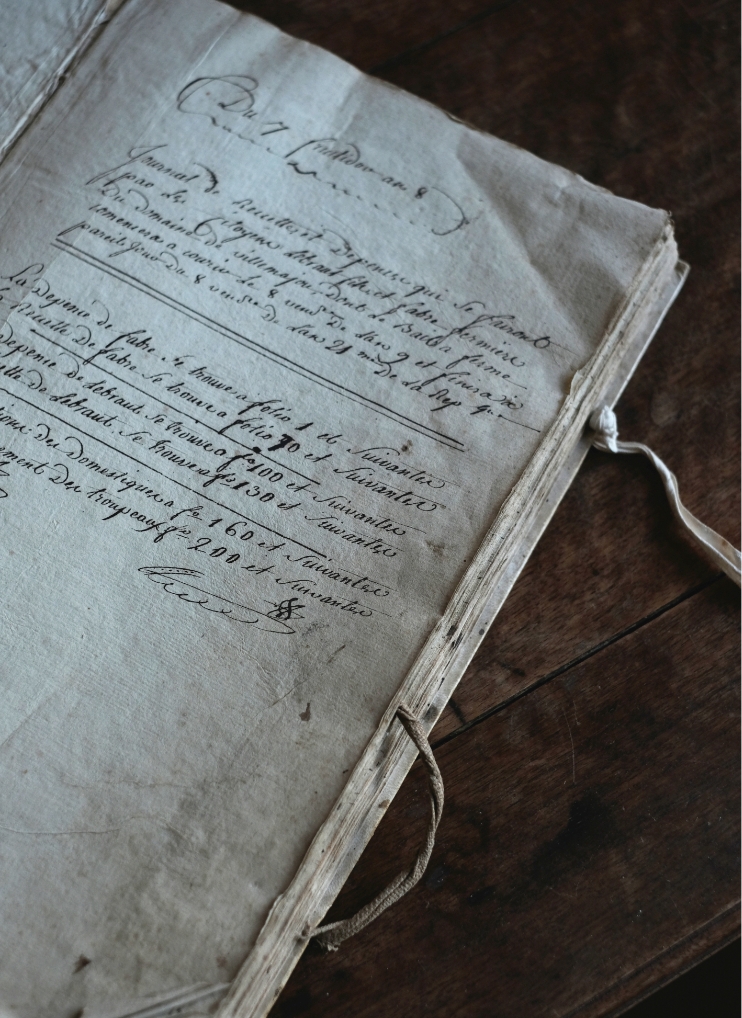 Du 7 fructidor an 8
Journal de Recette et Dépense que se feront
par les Citoyens débraut fils et fabre fermiers
Du Domaine de villemagne dont le Bail a ferme
comencera a courir le 8 vend.re De l'an 9 et finira a
pareil jour du 8 vend.re De l'an 21 de la Rep
La Depense de fabre se trouve a folio 1 et Suivantes
Recette de fabre se trouve a folio 70 et Suivantes
Depense de débraut se trouve a f.o 100 et Suivantes
de débraut se trouve a f.o 130 et Suivantes
des Domestiques a f.o 160 et Suivantes
Des troupeaux f.o 200 et Suivantes